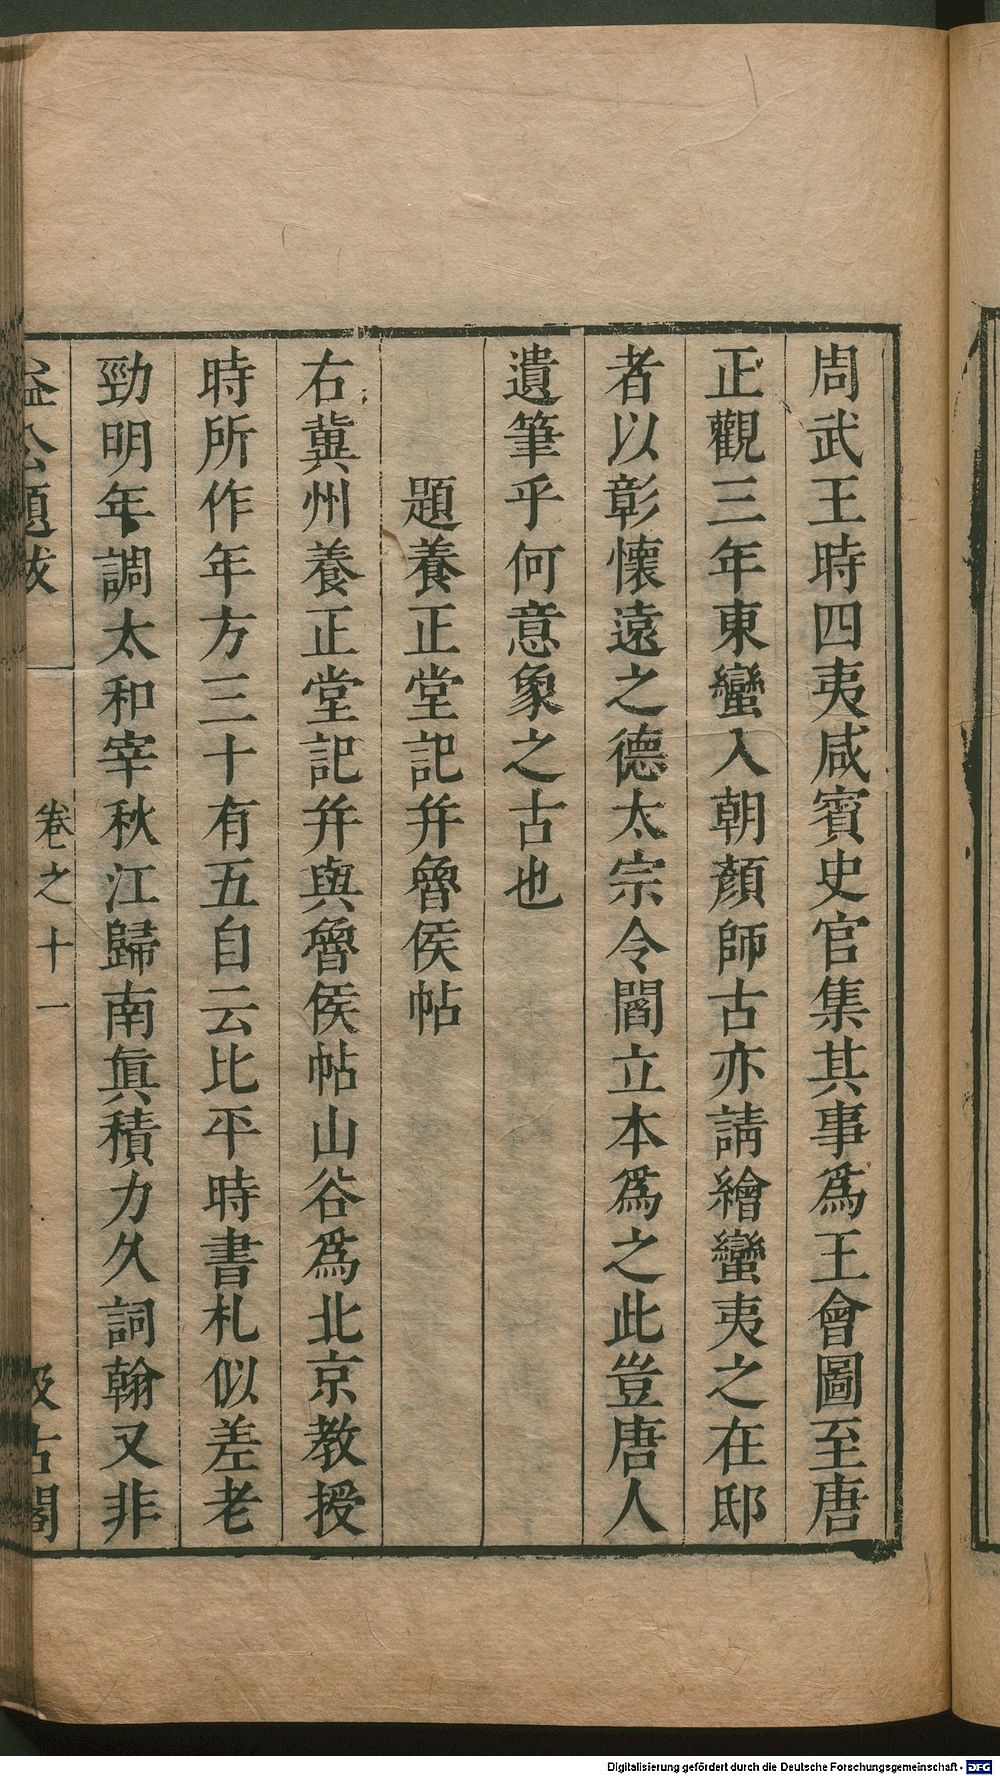 周武王時四夷咸賓史官集其事爲王會圖至唐
正觀三年東蠻入朝顏師古亦請繪蠻夷之在邸
者以彰懷遠之德太宗令閻立本爲之此豈唐人
遺筆乎何意象之古也
題養正堂記并魯侯帖
右冀州養正堂記并與魯侯帖山谷爲北京教授
時所作年方三十有五自云比平時書札似差老
勁明年調太和宰秋江歸南眞積力久詞翰又非
益公題跋 卷之十一 汲古閣
Digitalisierung gefördert durch die Deutsche Forschungsgemeinschaft - DFG